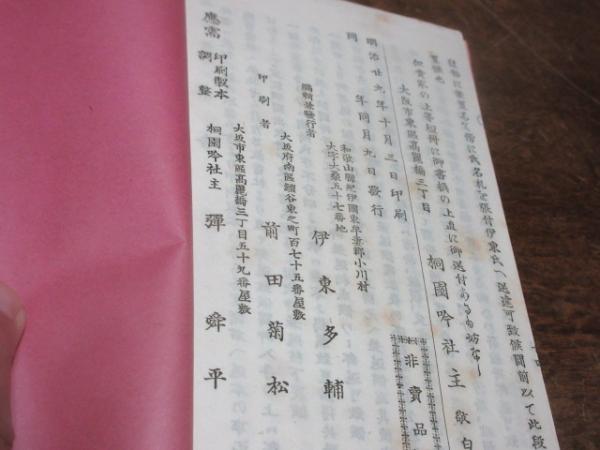 氏名札を張付伊東氏へ送達可致候間前以て此段
置候也
但貴家の上等短冊に御書損の上直に御送付あるも妨なし
大阪市東區高麗橋三丁目
桐園吟社主 敬白
非賣品
明治廿九年十月三日印刷
同 年同月九日發行
和歌山縣紀伊國東牟婁郡小川村
大字大桑五十七番地
編輯兼發行者 伊東多輔
大阪府南區鍛谷東之町百七十五番屋敷
印刷者 前田菊松
大阪市東區高麗橋三丁目五十九番屋敷
應需 印刷製本調整 桐園吟社主 彈舜平